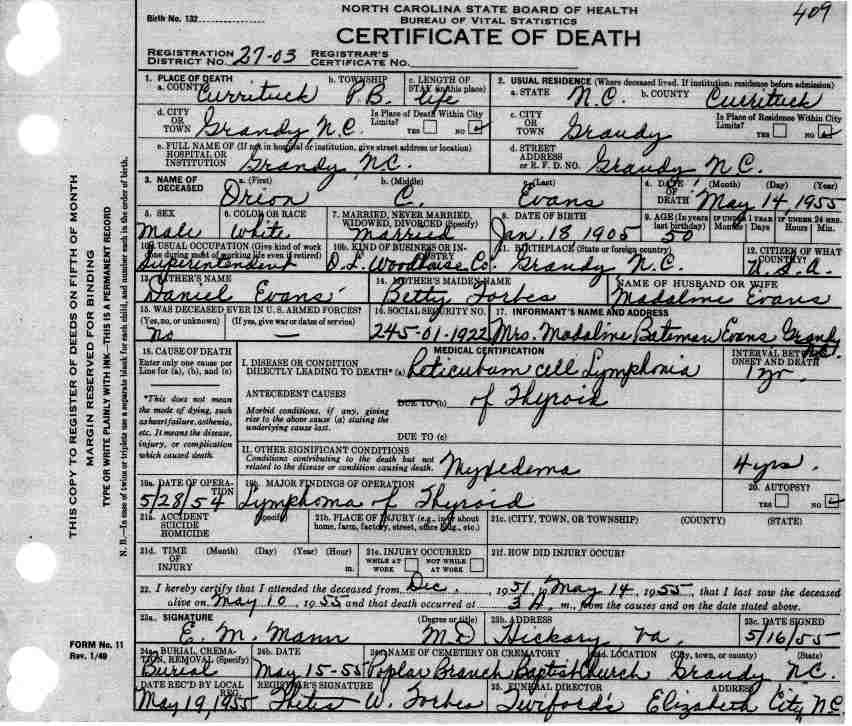 409
NORTH CAROLINA STATE BOARD OF HEALTH
BUREAU OF VITAL STATISTICS
Birth No. 132
CERTIFICATE OF DEATH
REGISTRATION DISTRICT NO. 27-03 REGISTRAR'S CERTIFICATE NO.
1. PLACE OF DEATH
a. COUNTY Currituck
b. TOWNSHIP P.B.
c. LENGTH OF STAY (in this place) life
2. USUAL RESIDENCE (Where deceased lived. If institution: residence before admission)
a. STATE N.C. b. COUNTY Currituck
d. CITY OR TOWN Grandy N.C.
Is Place of Death Within City Limits? YES NO
c. CITY OR TOWN Grandy
Is Place of Residence Within City Limits? YES NO
e. FULL NAME OF (If not in hospital or institution, give street address or location)
HOSPITAL OR INSTITUTION Grandy N.C.
d. STREET ADDRESS or R. F. D. NO. Grandy N.C.
3. NAME OF DECEASED
a. (First) Orion
b. (Middle) C.
c. (Last) Evans
4. DATE OF DEATH (Month) (Day) (Year) May 14 1955
5. SEX Male
6. COLOR OR RACE White
7. MARRIED, NEVER MARRIED, WIDOWED, DIVORCED (Specify) Married
8. DATE OF BIRTH Jan. 18 1905
9. AGE (In years last birthday) 50
IF UNDER 1 YEAR Months Days
IF UNDER 24 HRS. Hours Min.
10a. USUAL OCCUPATION (Give kind of work done during most of working life even if retired) Superintendent
10b. KIND OF BUSINESS OR INDUSTRY
11. BIRTHPLACE (State or foreign country) Grandy N.C.
12. CITIZEN OF WHAT COUNTRY? U.S.A.
13. FATHER'S NAME Daniel Evans
14. MOTHER'S MAIDEN NAME Betty Forbes
NAME OF HUSBAND OR WIFE Madaline Evans
15. WAS DECEASED EVER IN U.S. ARMED FORCES?
(Yes, no, or unknown) (If yes, give war or dates of service)
no —
16. SOCIAL SECURITY NO. 245-01-1922
17. INFORMANT'S NAME AND ADDRESS Mrs. Madaline Bateman Evans Grandy N.C.
18. CAUSE OF DEATH
Enter only one cause per line for (a), (b), and (c)
*This does not mean the mode of dying, such as heart failure, asthenia, etc. It means the disease, injury, or complication which caused death.
MEDICAL CERTIFICATION
INTERVAL BETWEEN ONSET AND DEATH
I. DISEASE OR CONDITION DIRECTLY LEADING TO DEATH* (a) cell Lymphoma 1 yr.
ANTECEDENT CAUSES
DUE TO (b) of Thyroid
Morbid conditions, if any, giving rise to the above cause (a) stating the underlying cause last.
DUE TO (c)
II. OTHER SIGNIFICANT CONDITIONS
Conditions contributing to the death but not related to the disease or condition causing death. Myxedema 4 yrs.
19a. DATE OF OPERATION 5/28/54
19b. MAJOR FINDINGS OF OPERATION Lymphoma of Thyroid
20. AUTOPSY? YES NO
21a. ACCIDENT SUICIDE HOMICIDE (Specify)
21b. PLACE OF INJURY (e.g., in or about home, farm, factory, street, office bldg., etc.)
21c. (CITY, TOWN, OR TOWNSHIP) (COUNTY) (STATE)
21d. TIME OF INJURY (Month) (Day) (Year) (Hour) m.
21e. INJURY OCCURRED WHILE AT WORK NOT WHILE AT WORK
21f. HOW DID INJURY OCCUR?
22. I hereby certify that I attended the deceased from Dec., 1951 to May 14, 1955, that I last saw the deceased
alive on May 10, 1955 and that death occurred at 3 A. m., from the causes and on the date stated above.
23a. SIGNATURE (Degree or title) E. M. Mann M.D.
23b. ADDRESS Hickory Va.
23c. DATE SIGNED 5/16/55
24a. BURIAL, CREMATION, REMOVAL (Specify) Burial
24b. DATE May 15-55
24c. NAME OF CEMETERY OR CREMATORY Poplar Branch Baptist Church
24d. LOCATION (City, town, or county) (State) Grandy N.C.
DATE REC'D BY LOCAL REG. May 19, 1955
REGISTRAR'S SIGNATURE W. Forbes
25. FUNERAL DIRECTOR ADDRESS Twiford's Elizabeth City N.C.
FORM No. 11
Rev. 1/49
THIS COPY TO REGISTER OF DEEDS ON FIFTH OF MONTH
MARGIN RESERVED FOR BINDING
TYPE OR WRITE PLAINLY WITH INK—THIS IS A PERMANENT RECORD
N. B.—In case of twins or triplets use a separate blank for each child, and number each in the order of birth.